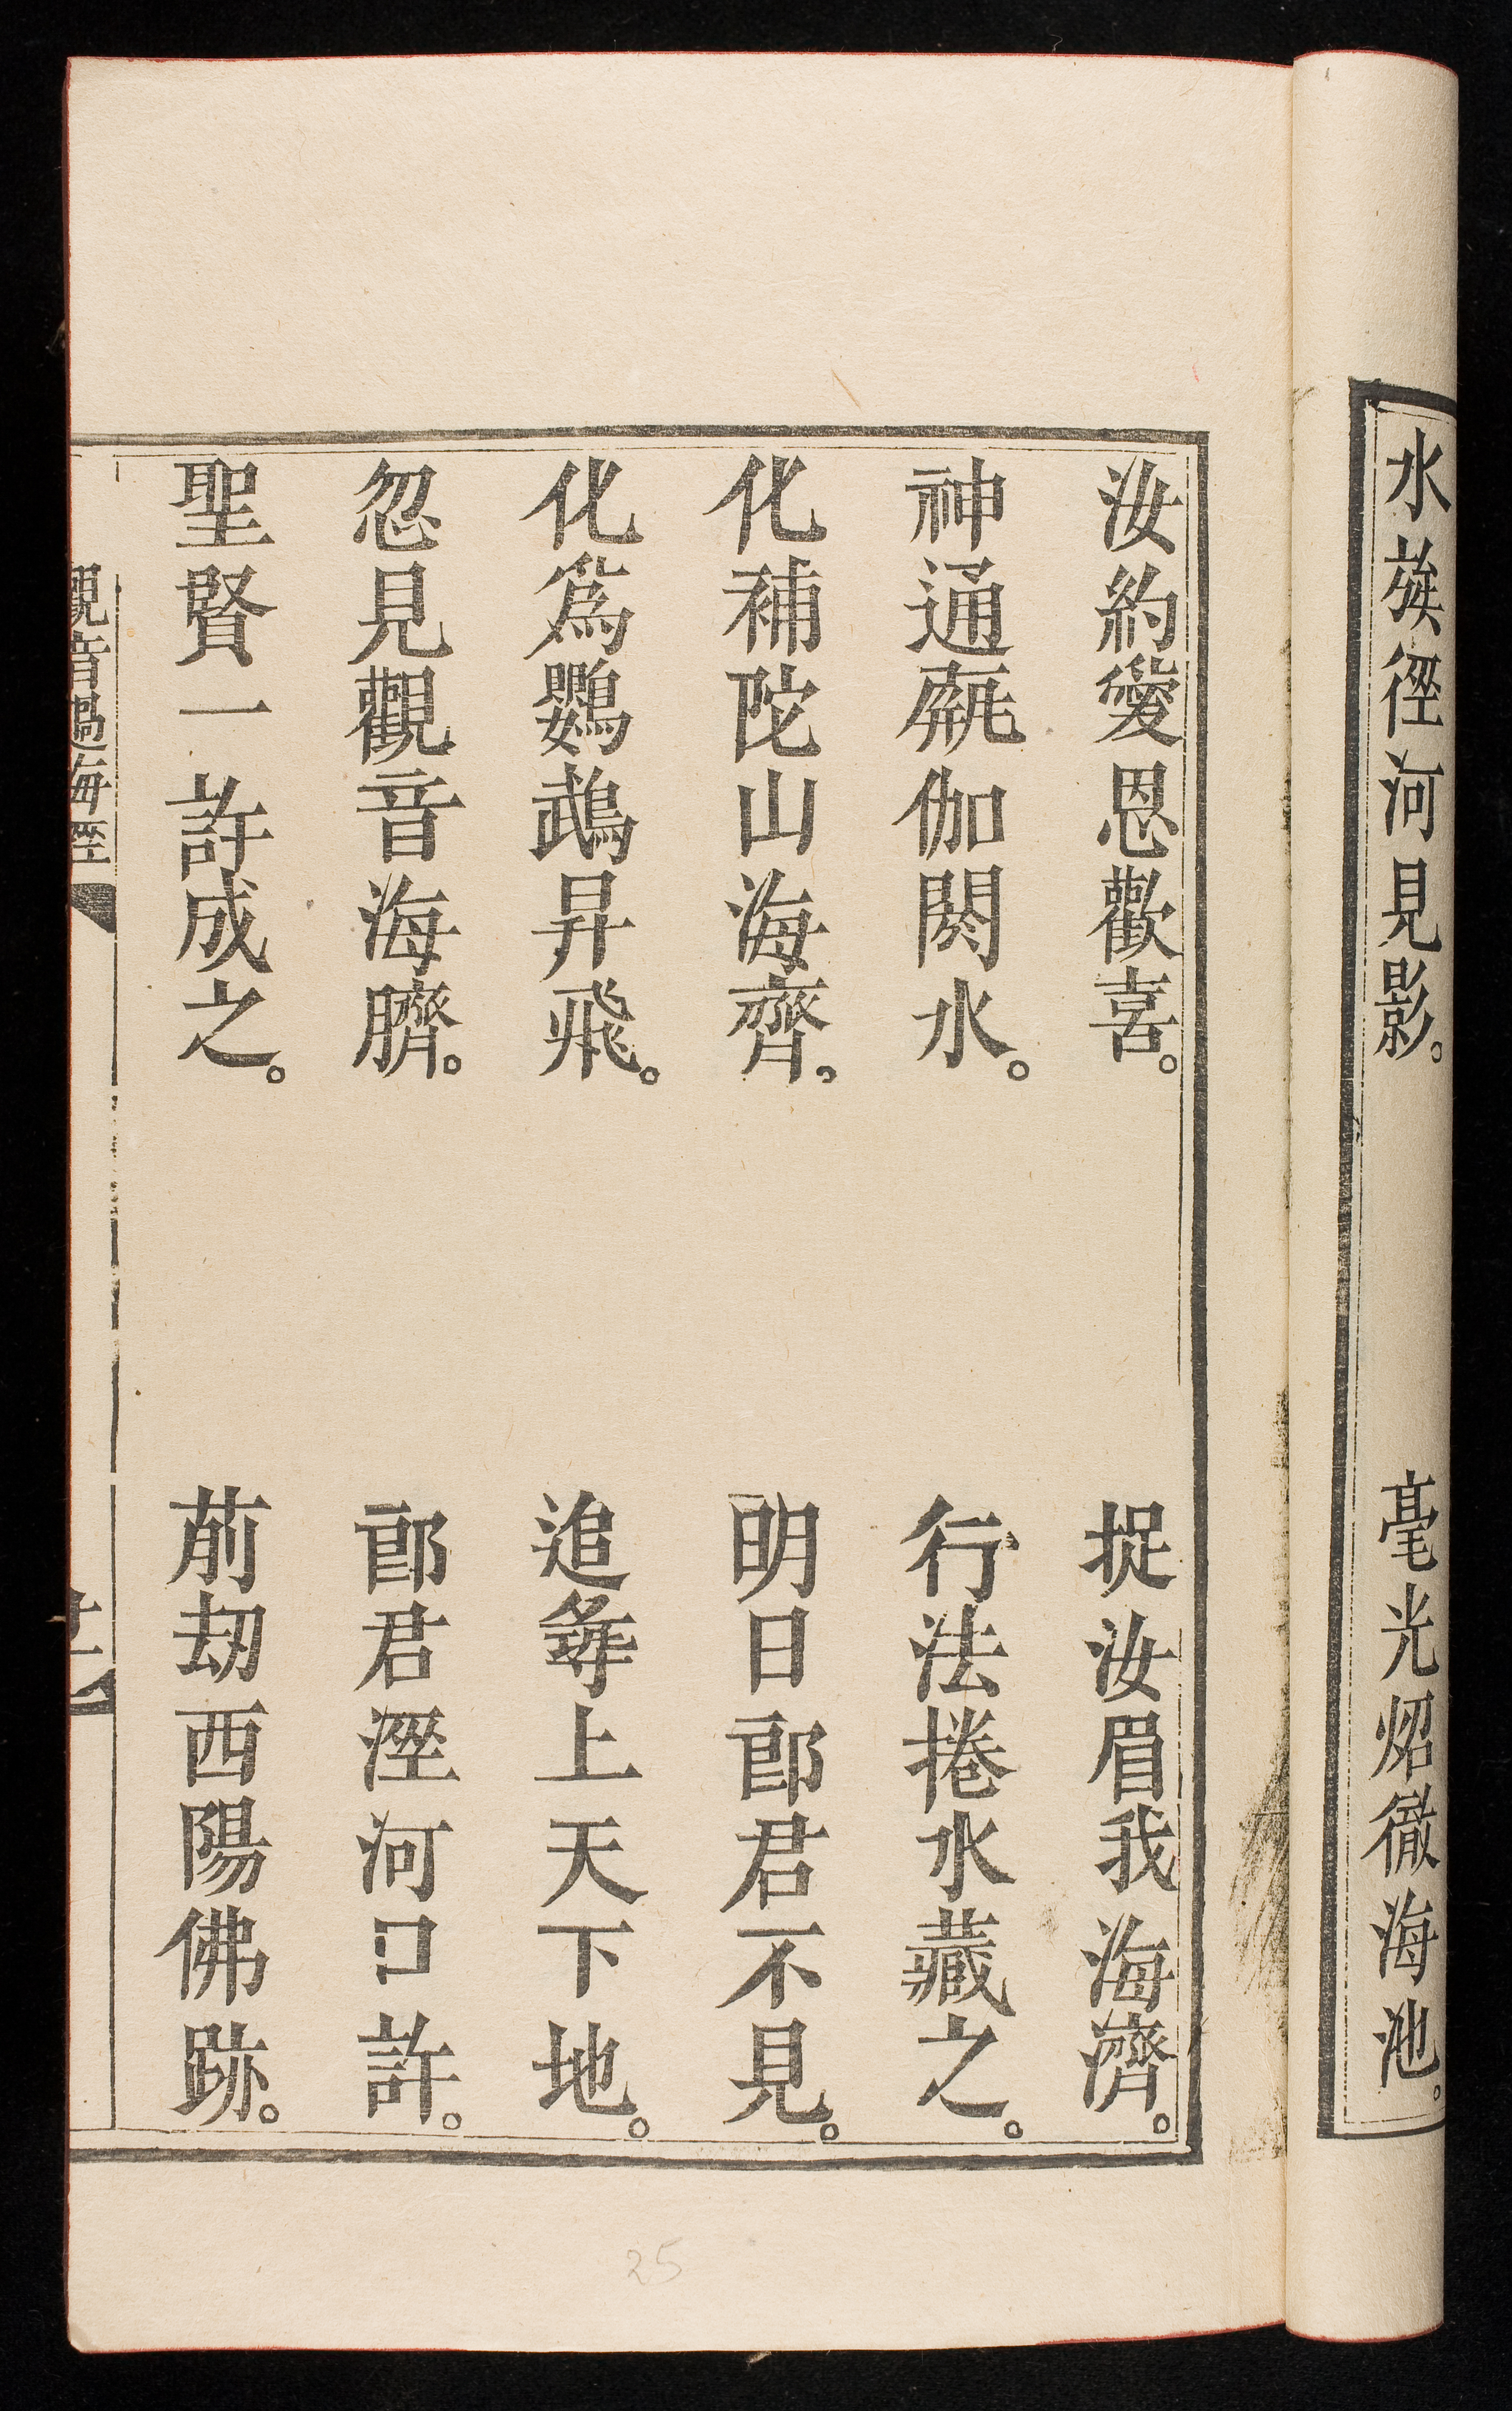 水族徑河見影。
毫光炤徹海池。
汝約愛恩歡喜。
捉汝眉我海濟。
神通𤭁伽閎水。
行法捲水藏之。
化補陀山海齊。
明日郎君不見。
化爲鸚鵡昇飛。
追尋上天下地。
忽見觀音海臍。
郎君涇河口許。
聖賢一許成之。
前劫西陽佛跡。
觀音過海經
廿二
25